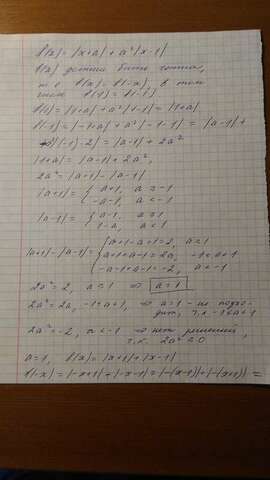 f(x) = |x+a| + a²|x-1|
f(x) должна быть чётная,
т.е f(x) = f(-x), в том
числе f(1) = f(-1)
f(1) = |1+a| + a²|1-1| = |1+a|
f(-1) = |-1+a| + a²|-1-1| = |a-1| +
|a-1| + 2a²
|1+a| = |a-1| + 2a²,
2a² = |a+1| - |a-1|
|a+1| = { a+1, a ≥ -1
-a-1, a < -1
|a-1| = { a-1, a ≥ 1
1-a, a < 1
|a+1| - |a-1| = { a+1-a+1=2, a ≥ 1
a+1+a-1=2a, -1 ≤ a < 1
-a-1+a-1=-2, a < -1
2a² = 2, a ≥ 1 ⇒ a=1
2a² = 2a, -1 ≤ a < 1, ⇒ a=1 - не подхо-
дит, т.к -1≤a<1
2a² = -2, a < -1 ⇒ нет решений,
т.к. 2a² ≥ 0
a=1, f(x) = |x+1| + |x-1|
f(-x) = |-x+1| + |-x-1| = |-(x-1)| + |-(x+1)| =